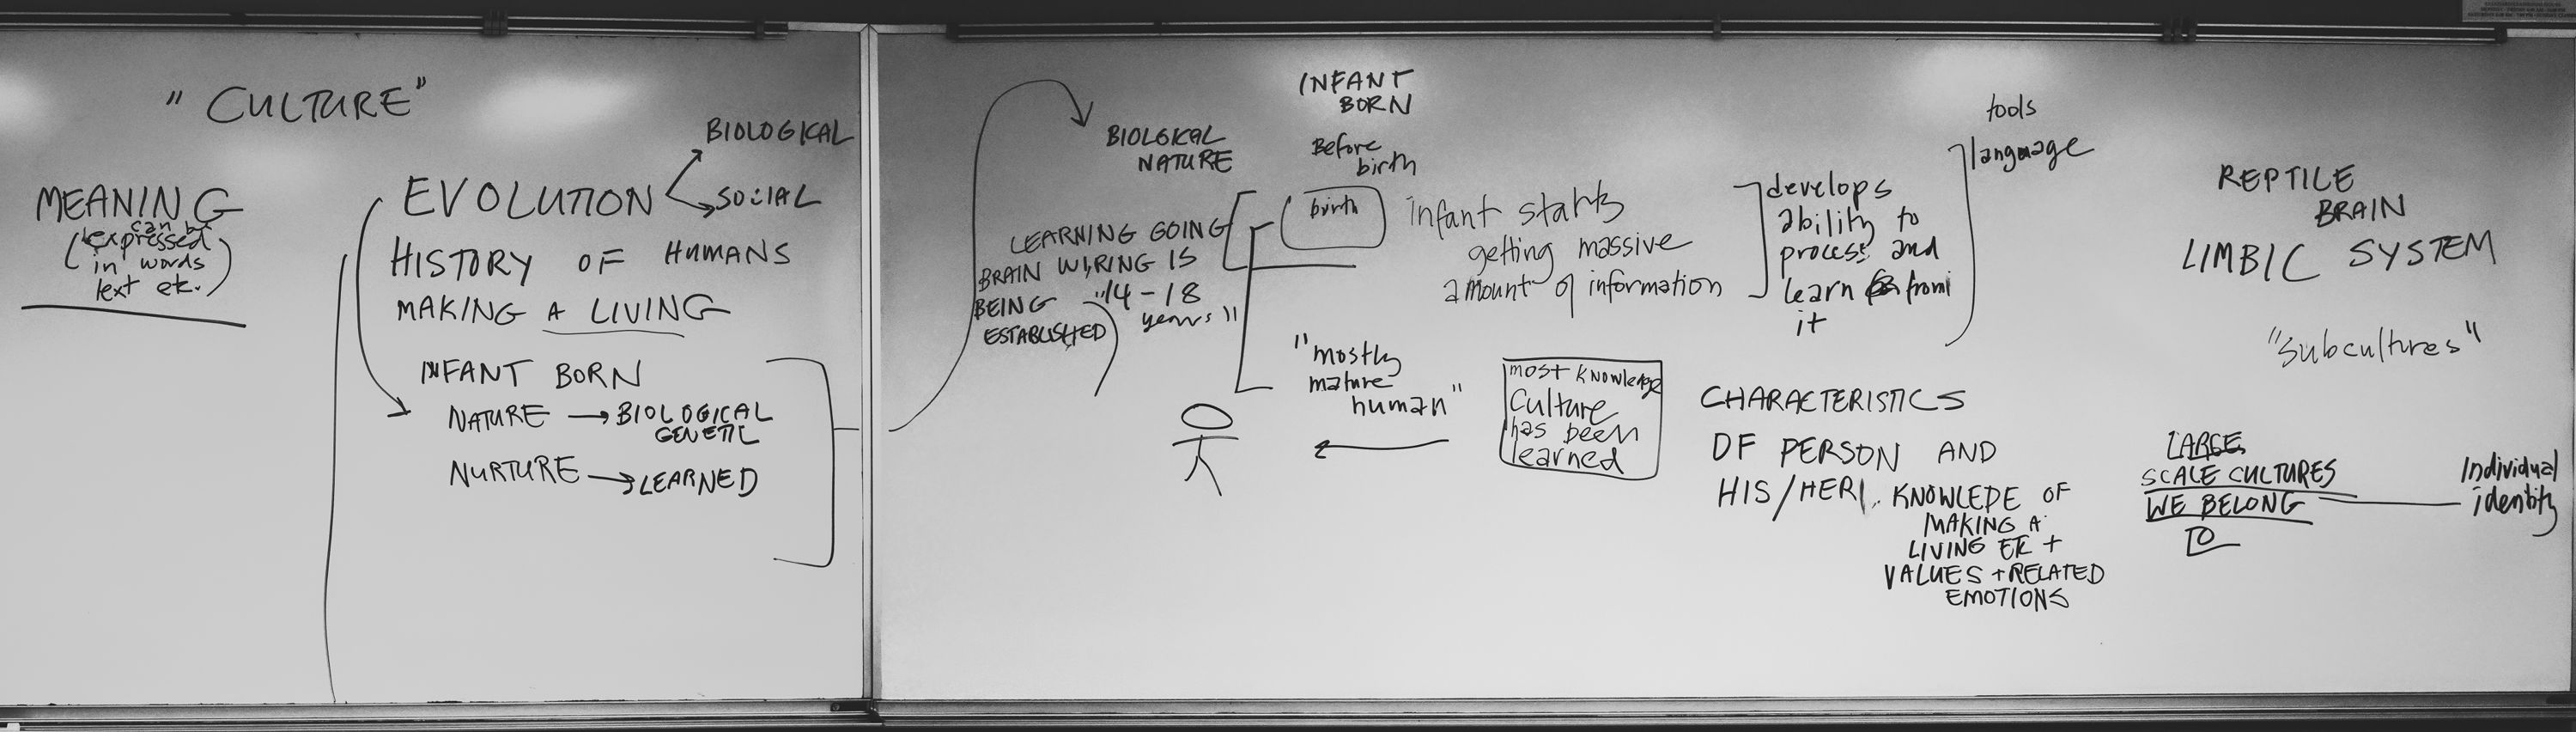 "CULTURE"
MEANING
(can be
expressed
in words
text etc.)
BIOLOGICAL
EVOLUTION
SOCIAL
HISTORY OF HUMANS
MAKING A LIVING
INFANT BORN
NATURE → BIOLOGICAL
GENETIC
NURTURE → LEARNED
INFANT
BORN
BIOLGICAL
NATURE
Before
birth
birth
LEARNING GOING
BRAIN WIRING IS
BEING "14-18
years"
ESTABLISHED
infant starts
getting massive
amount of information
develops
ability to
process and
learn from
it
tools
language
"mostly
mature
human"
most knowledge
Culture
has been
learned
CHARACTERISTICS
OF PERSON AND
HIS/HER
KNOWLEDE OF
MAKING A
LIVING ETC +
VALUES + RELATED
EMOTIONS
REPTILE
BRAIN
LIMBIC SYSTEM
"subcultures"
LARGE
SCALE CULTURES
WE BELONG
TO
Individual
identity